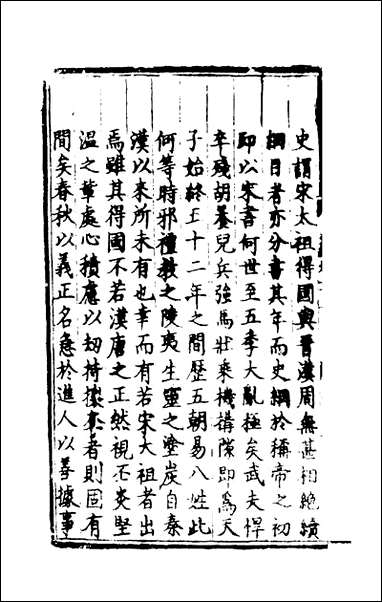 史謂宋太祖得國與晉漢周無甚相絶續
綱目者亦分書其年而史綱於稱帝之初
即以宋書何世至五季大亂極矣武夫悍
卒殘胡養兒兵強馬壯乗機搆隙即為天
子始終五十二年之間歴五朝易八姓此
何等時邪禮教之陵夷生靈之塗炭自秦
漢以來所未有也幸而有若宋太祖者出
焉雖其得國不若漢唐之正然視丕炎堅
温之輩處心積慮以刼持攘奪者則固有
間矣春秋以義正名急於進人以善據事